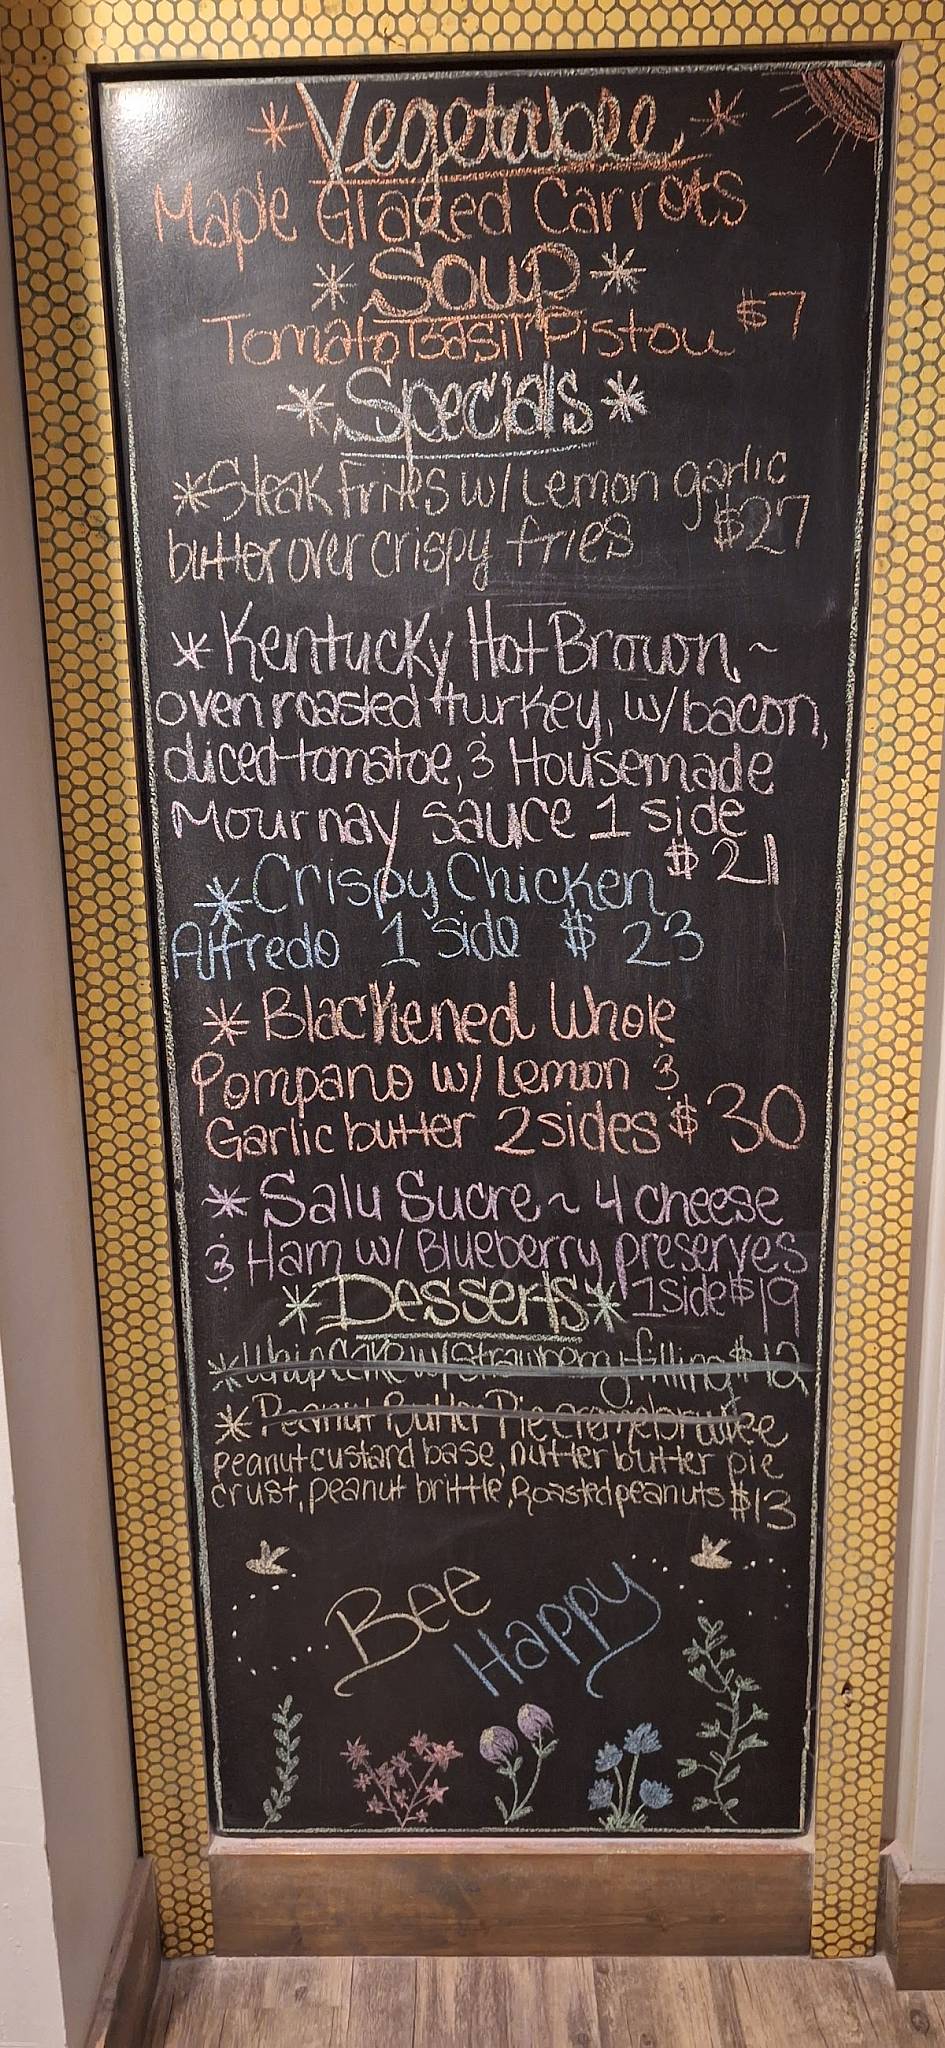 Vegetabee
Maple Glazed Carrots
Soup
Tomato Basil Pistou $7
Specials
Steak Frites w/ Lemon garlic
butter over crispy fries $27
Kentucky Hot Brown ~
oven roasted turkey, w/ bacon,
diced tomatoe, & Housemade
Mournay sauce 1 side
$21
Crispy Chicken
Alfredo 1 side $23
Blackened Whole
Pompano w/ Lemon &
Garlic butter 2 sides $30
Salu Sucre ~ 4 cheese
& Ham w/ Blueberry preserves
1 side $19
Desserts
Whip Cake w/ Strawberry filling $12
Peanut Butter Pie cremebrulee
peanut custard base, nutter butter pie
crust, peanut brittle, Roasted peanuts $13
Bee
Happy